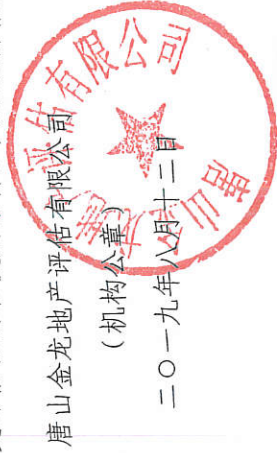 唐山金龙地产评估有限公司
（机构公章）
二〇一九年八月十二日